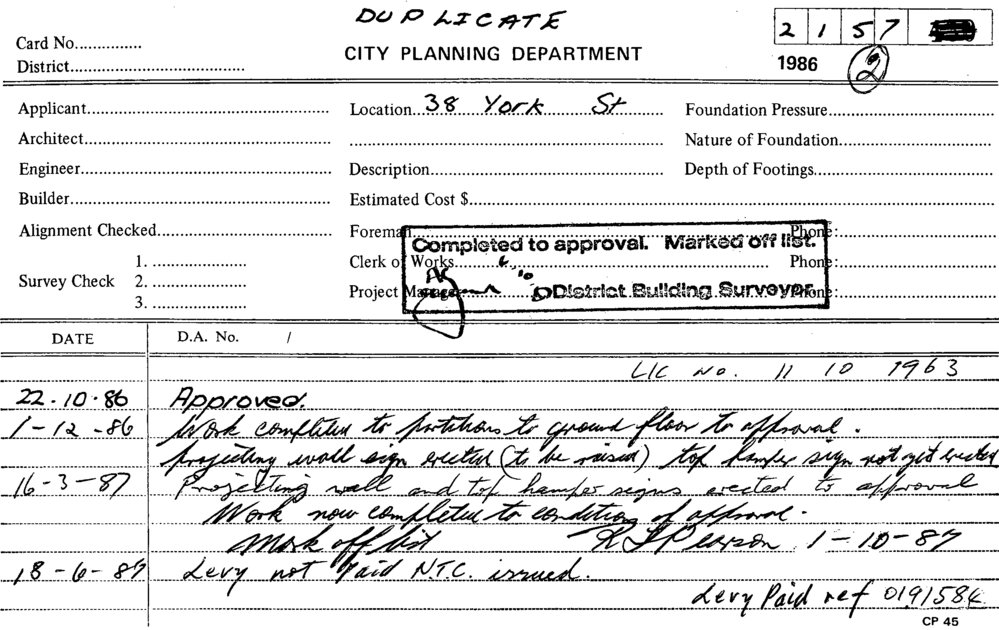 DUPLICATE
2 1 5 7
Card No...............
CITY PLANNING DEPARTMENT
District...............
1986 2
Applicant...............
Location...38 York St
Foundation Pressure...............
Architect...............
Nature of Foundation...............
Engineer...............
Description...............
Depth of Footings...............
Builder...............
Estimated Cost $...............
Alignment Checked...............
Foreman...............
Phone:...............
Completed to approval. Marked off list.
Clerk of Works...............
Phone:...............
Survey Check
1. ...............
2. ...............
3. ...............
Project Manager...............
Phone:...............
District Building Surveyor
DATE
D.A. No. /
LIC No. 11 10 1963
22-10-86 Approved.
1-12-86 Work completed to partitions to ground floor to approval.
projecting wall sign erected (to be raised) top hamper sign not yet erected
16-3-87 Projecting wall and top hamper signs erected to approval
Work now completed to condition of approval.
Mark off list R J Pearson 1-10-87
18-6-87 Levy not Paid N.T.C. issued.
Levy Paid ref 0191584
CP 45